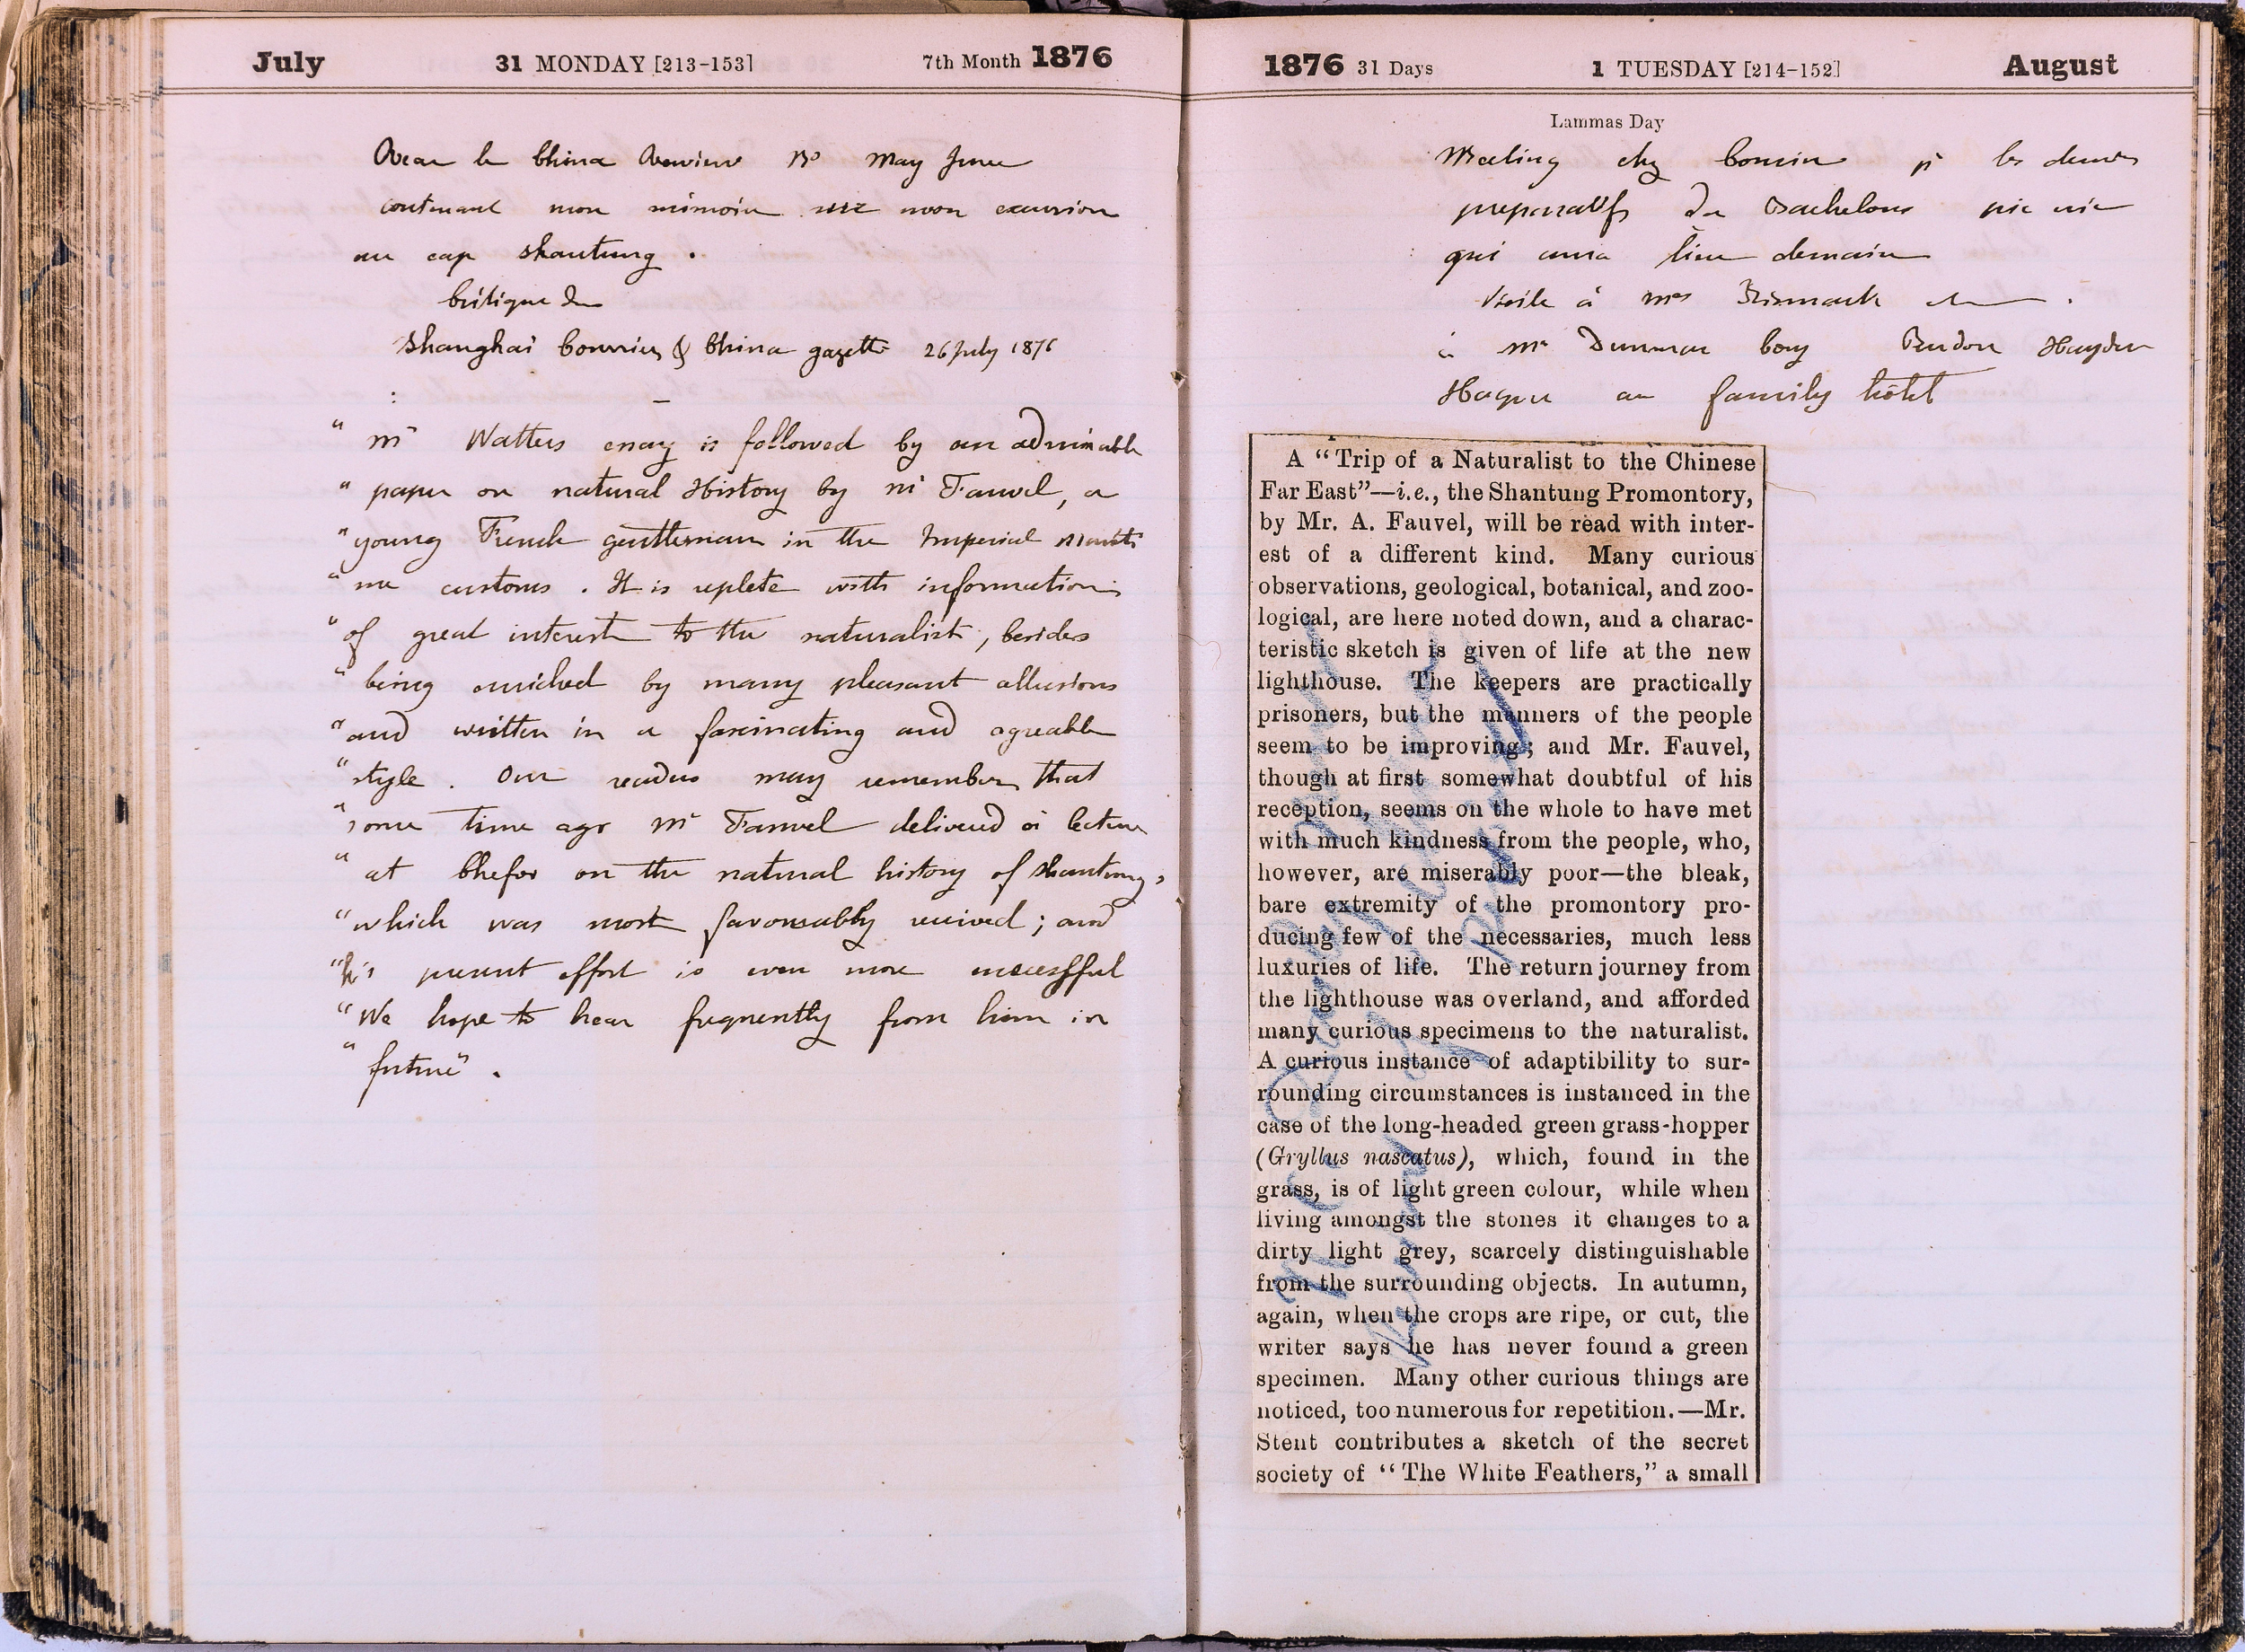 July 31 MONDAY [213-153] 7th Month 1876
Recu le China Review No May June
contenant mon mémoire sur mon excursion
au cap Shantung.
Critique du
Shanghai Courrier & China gazette 26 July 1876
" Mr Watters essay is followed by an admirable
" paper on natural History by Mr Fauvel, a
" young French gentleman in the Imperial Mariti
" me customs. It is replete with information
" of great interest to the naturalist, besides
" being enriched by many pleasant allusions
" and written in a fascinating and agreable
" style. Our readers may remember that
" some time ago Mr Fauvel delivered a lecture
" at Chefoo on the natural history of Shantung,
" which was most favourably received; and
" his present effort is even more successful
" We hope to hear frequently from him in
" future".
1876 31 Days 1 TUESDAY [214-152] August
Lammas Day
Meeting chez Cousin pr les derniers
preparatifs du Bachelors pic nic
qui aura lieu demain
Visite à Mrs Bismark
à Mr Dunman Hayden
au family hôtel
A “Trip of a Naturalist to the Chinese
Far East”—i.e., the Shantung Promontory,
by Mr. A. Fauvel, will be read with inter-
est of a different kind. Many curious
observations, geological, botanical, and zoo-
logical, are here noted down, and a charac-
teristic sketch is given of life at the new
lighthouse. The keepers are practically
prisoners, but the manners of the people
seem to be improving; and Mr. Fauvel,
though at first somewhat doubtful of his
reception, seems on the whole to have met
with much kindness from the people, who,
however, are miserably poor—the bleak,
bare extremity of the promontory pro-
ducing few of the necessaries, much less
luxuries of life. The return journey from
the lighthouse was overland, and afforded
many curious specimens to the naturalist.
A curious instance of adaptibility to sur-
rounding circumstances is instanced in the
case of the long-headed green grass-hopper
(Gryllus nascatus), which, found in the
grass, is of light green colour, while when
living amongst the stones it changes to a
dirty light grey, scarcely distinguishable
from the surrounding objects. In autumn,
again, when the crops are ripe, or cut, the
writer says he has never found a green
specimen. Many other curious things are
noticed, too numerous for repetition.—Mr.
Stent contributes a sketch of the secret
society of “The White Feathers,” a small